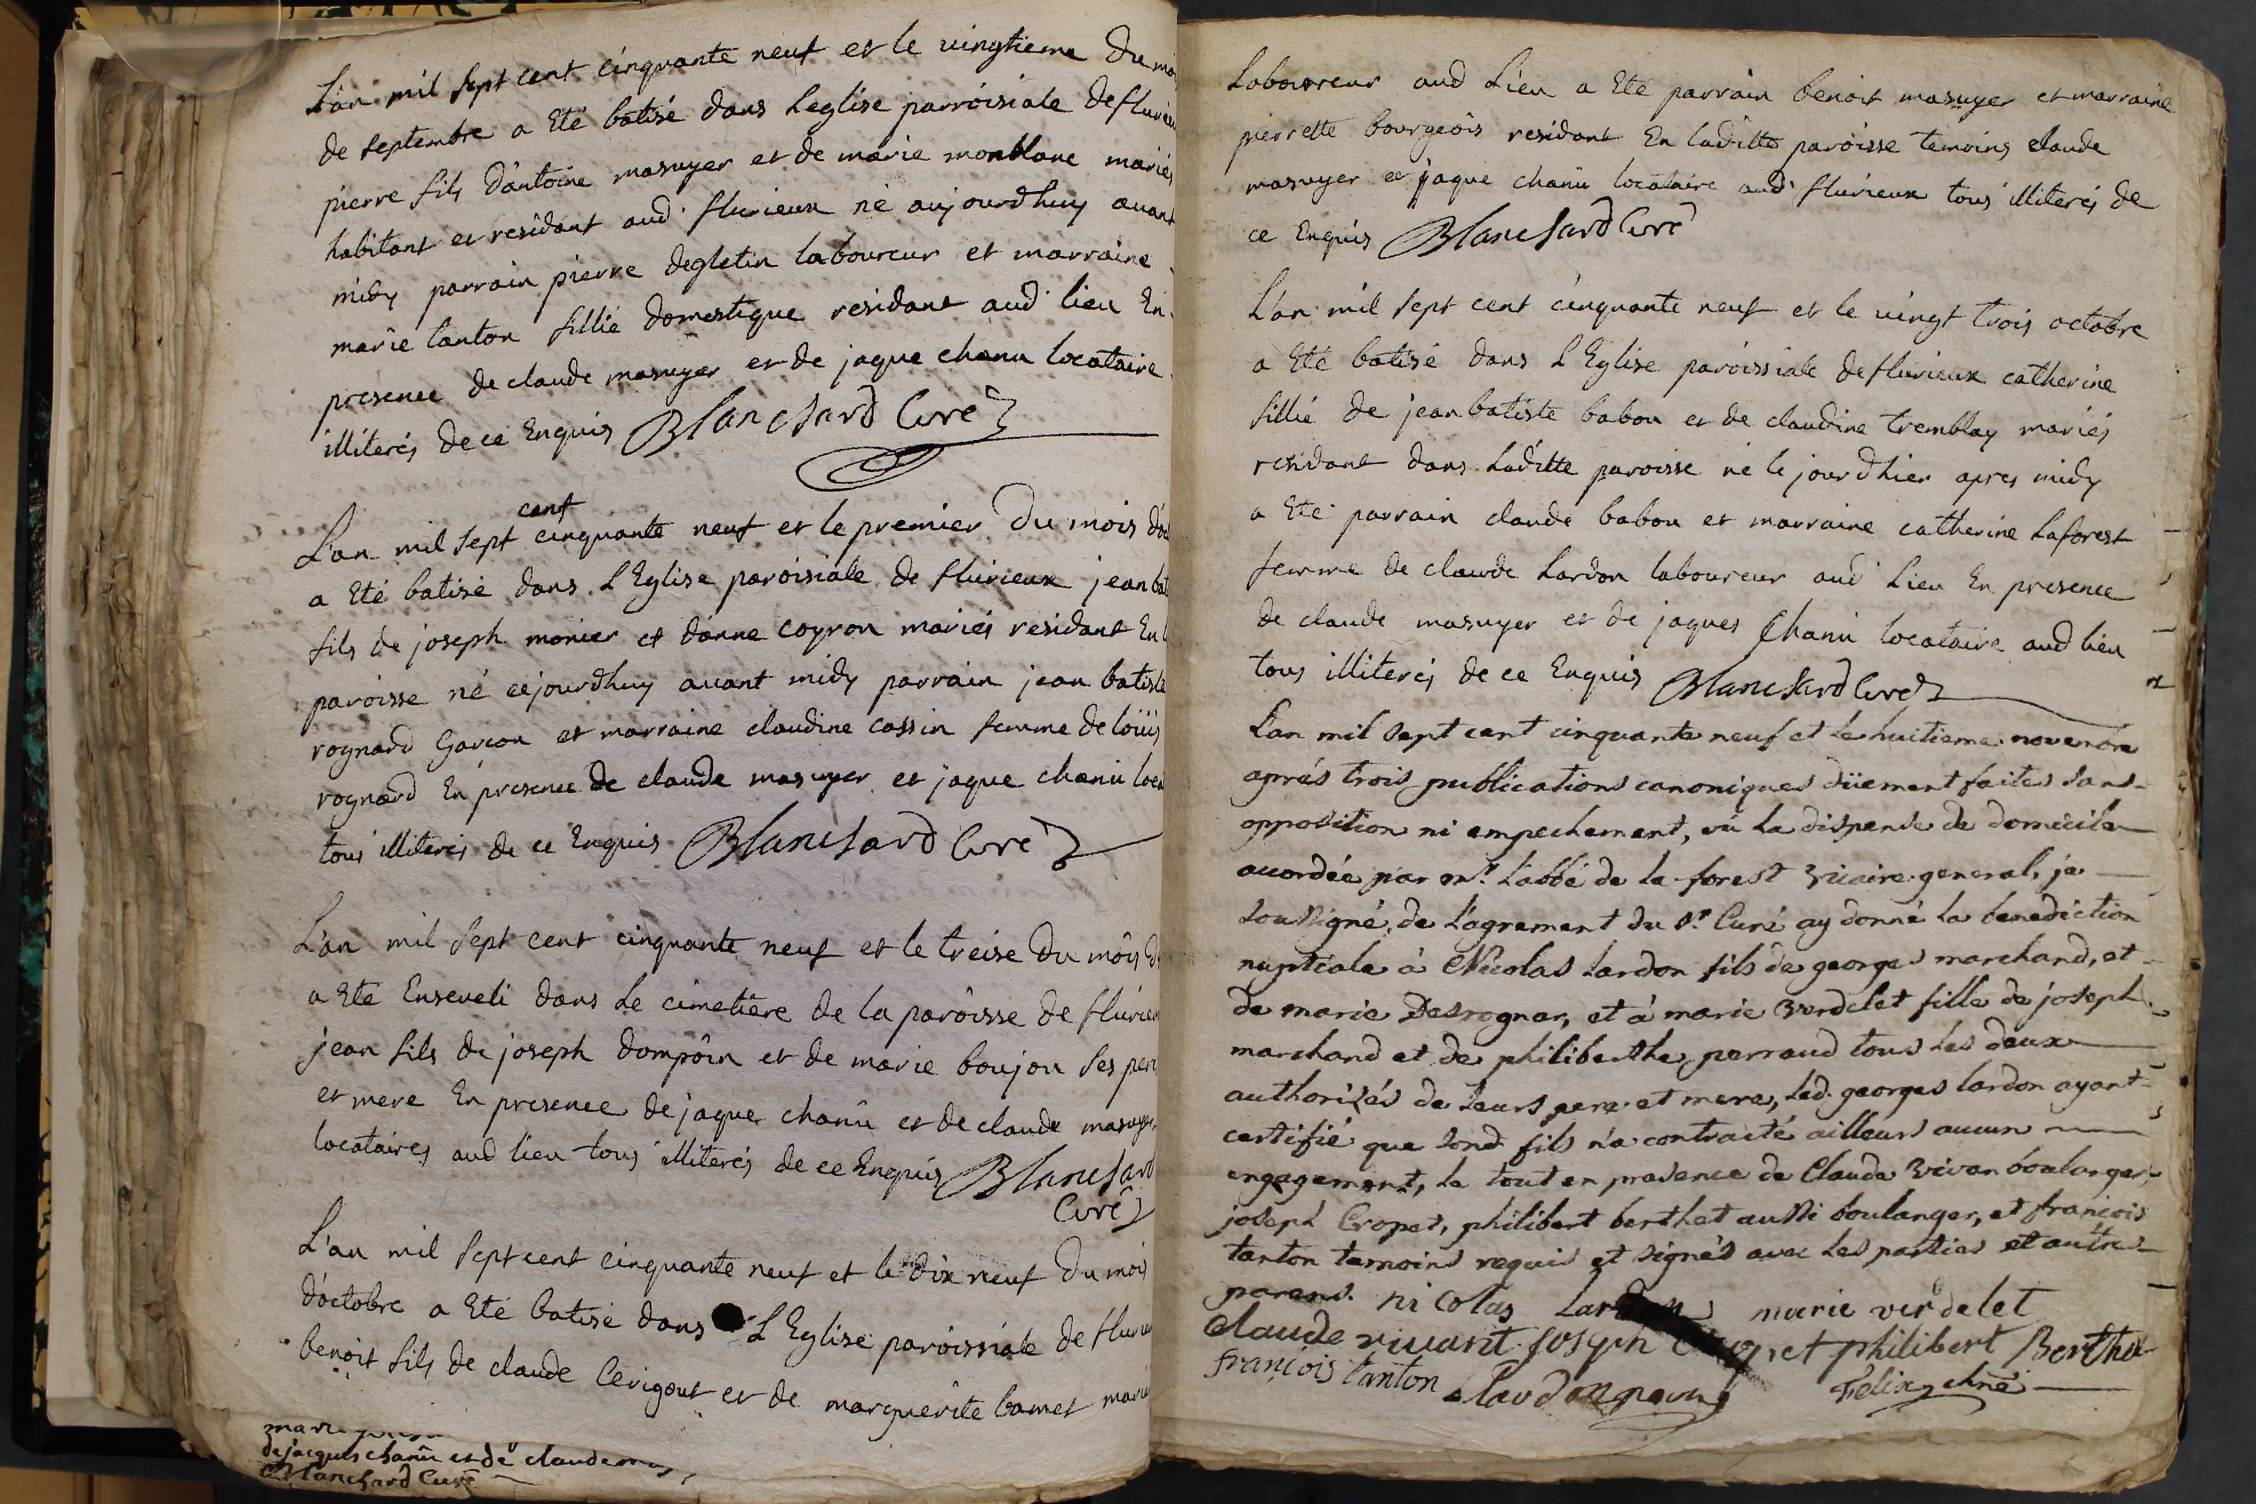 L'an mil sept cent cinquante neuf et le vingtieme du moi
de septembre a Eté batisé dans Leglise parroisiale de flurieu
pierre fils d'antoine masuyer et de marie monblanc mariés
habitant et residant aud. flurieux né aujourdhuy avant
midy parrain pierre degletin laboureur et marraine
marie tanton fillie domestique residant aud lieu En
presence de claude masuyer et de jaque chanu locataire
illiterés de ce Enquis Blanchard Curé
L'an mil sept cent cinquante neuf et le premier du mois d'oc
a Eté batisé dans L'Eglise paroisiale de flurieux jean bat
fils de joseph monier et d'anne coyron mariés residant En l
paroisse né cejourdhuy avant midy parrain jean batiste
rognard Garcon et marraine claudine cassin femme de loüis
rognard En presence de claude masuyer et jaque chanu loca
tous illiterés de ce Enquis Blanchard Curé
L'an mil sept cent cinquante neuf et le treise du môis d
a Eté Enseveli dans Le cimetiere de la paroisse de flurieu
jean fils de joseph dompoin et de marie boujon ses per
et mere En presence de jaque chanu et de claude masuyer
locataires aud lieu tous illiterés de ce Enquis Blanchard
Curé
L'an mil sept cent cinquante neuf et le dix neuf du mois
d'octobre a Eté batisé dans L'Eglise paroissiale de flurieu
benoit fils de claude Cerigout et de marguerite bamet marié
de jacques chanu et de claude mas
Blanchard Curé
Laboureur aud Lieu a Eté parrain benoit masuyer et marraine
pierrette bourgeois residant En laditte paroisse temoins claude
masuyer et jaque chanu locataire aud. flurieux tous illiterés de
ce Enquis Blanchard Curé
L'an mil sept cent cinquante neuf et le vingt trois octobre
a Eté batisé dans L'Eglise paroissiale de flurieux catherine
fillié de jean batiste babou et de claudine tremblay mariés
residant dans Laditte paroisse né le jour d'hier apres midy
a Eté parrain claude babou et marraine catherine Laforest
femme de claude Lardon laboureur aud Lieu En presence
de claude masuyer et de jaques Chanu locataire aud lieu
tous illiterés de ce Enquis Blanchard Curé
L'an mil sept cent cinquante neuf et le huitieme novembre
aprés trois publications canoniques düement faites sans
opposition ni empechement, vü la dispense de domicile
accordée par mr. l'abbé de la forest vicaire general, je
soussigné, de l'agrement du sr. Curé ay donné la benediction
nuptiale à Nicolas Lardon fils de georges marchand, et
de marie Desrognar, et à marie verdelet fille de joseph
marchand et de philiberthe perraud tous les deux
authorisés de leurs pere et mere, led. georges lardon ayant
certifié que sond fils n'a contracté ailleurs aucun
engagement, le tout en presence de Claude vivan boulanger,
joseph Cropet, philibert berthet aussi boulanger, et francois
tanton temoins requis et signés avec les parties et autres
parens. nicolas Lardon marie verdelet
Claude vivant joseph Cropet philibert Berthet
françois tanton